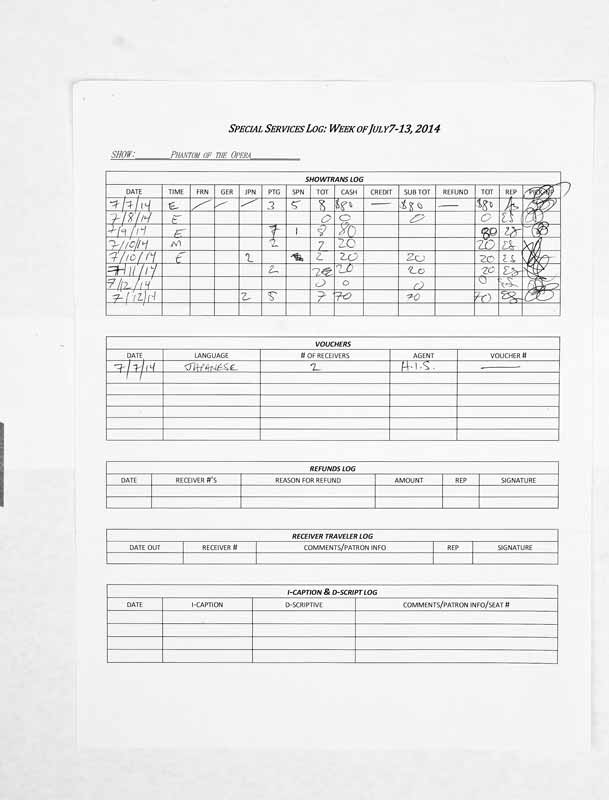 SPECIAL SERVICES LOG: WEEK OF JULY7-13, 2014
SHOW: PHANTOM OF THE OPERA
SHOWTRANS LOG
DATE TIME FRN GER JPN PTG SPN TOT CASH CREDIT SUB TOT REFUND TOT REP
7/7/14 E / / / 3 5 8 $80 — $80 — $80
7/8/14 E 0 0 0 0 ES
7/9/14 E 7 1 8 80 80 ES
7/10/14 M 2 2 20 20 ES
7/10/14 E 2 2 20 20 20 ES
7/11/14 2 2 20 20 20 ES
7/12/14 0 0 0 0 ES
7/12/14 2 5 7 70 70 70 ES
VOUCHERS
DATE LANGUAGE # OF RECEIVERS AGENT VOUCHER #
7/7/14 JAPANESE 2 H.I.S. —
REFUNDS LOG
DATE RECEIVER #'S REASON FOR REFUND AMOUNT REP SIGNATURE
RECEIVER TRAVELER LOG
DATE OUT RECEIVER # COMMENTS/PATRON INFO REP SIGNATURE
I-CAPTION & D-SCRIPT LOG
DATE I-CAPTION D-SCRIPTIVE COMMENTS/PATRON INFO/SEAT #